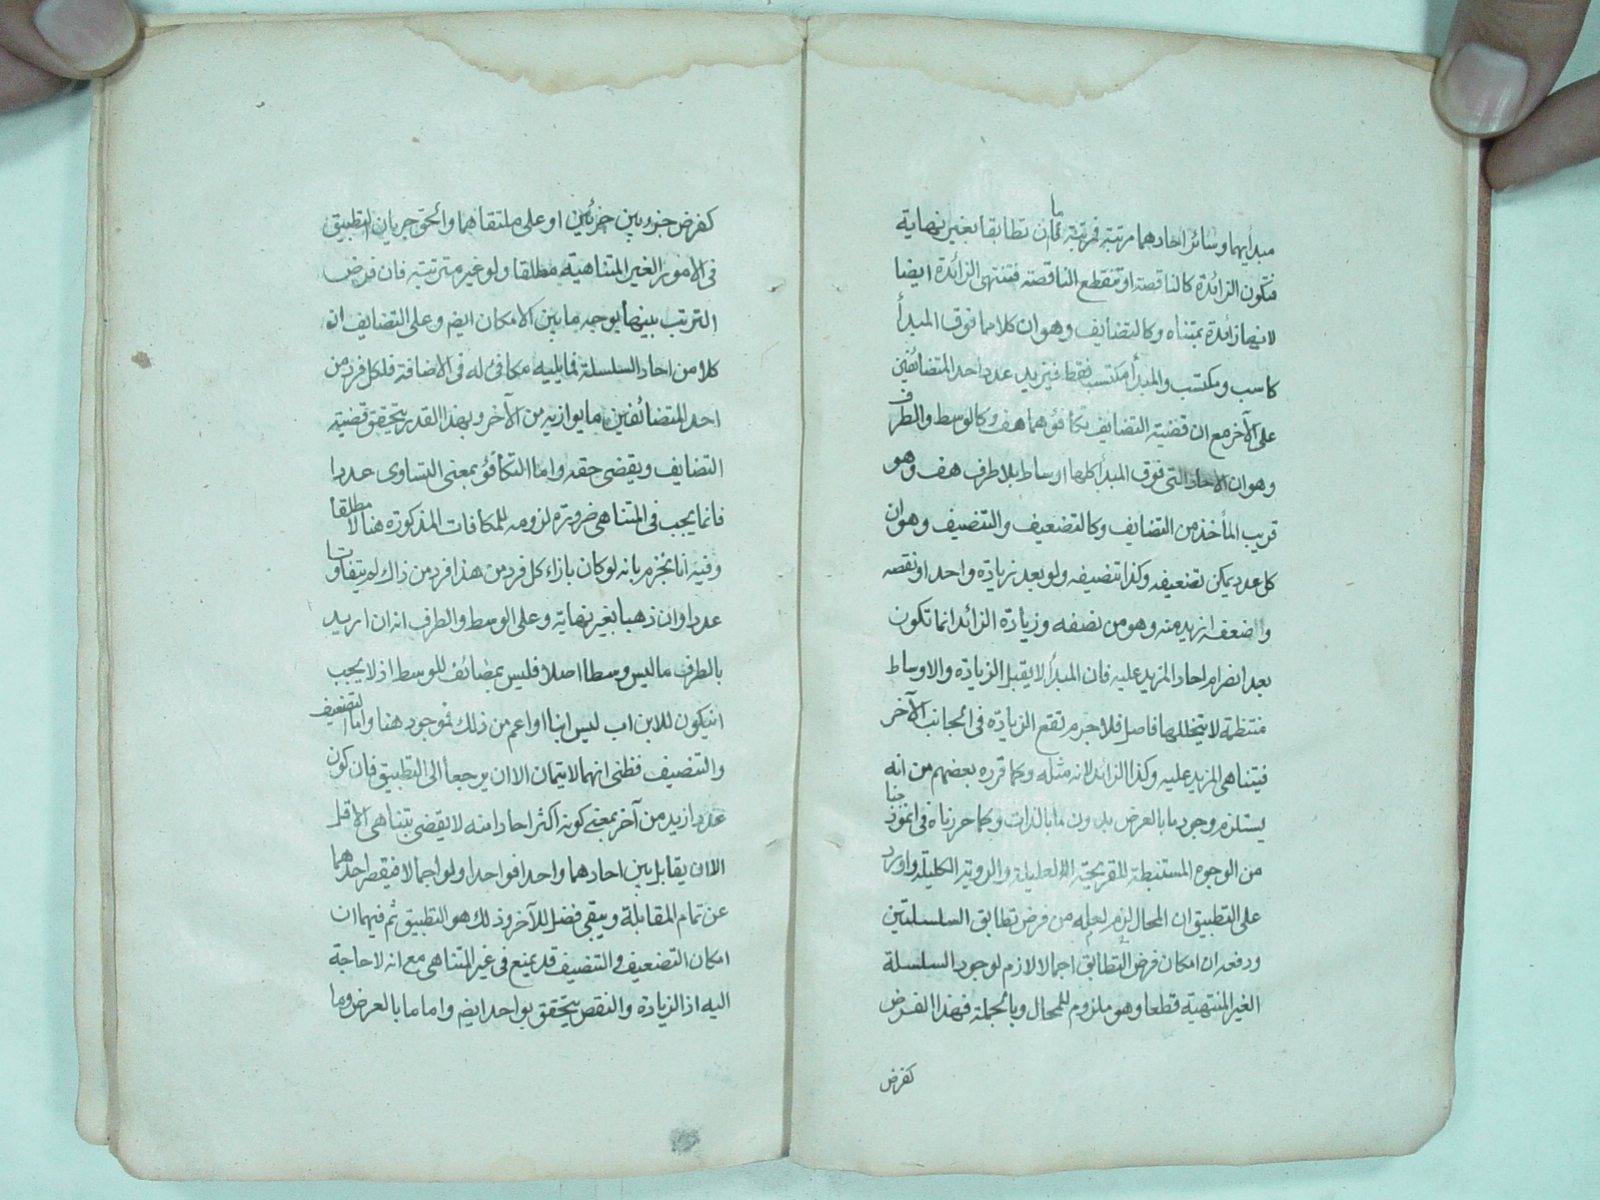 مبدأيهما وسائر احادهما مرتبة فمرتبة فاما ان تطابقا بغير نهاية
فتكون الزائدة كالناقصة او تنقطع الناقصة فتنتهى الزائدة ايضا
لانها زائدة بمتناه وكالتضايف وهو ان كلا مما فوق المبدأ
كاسب ومكتسب والمبدأ مكتسب فقط فيزيد عدد احد المتضائفين
على الآخر مع ان قضية التضايف تكافؤهما هف وكالوسط والطرف
وهو ان الاحاد التى فوق المبدأ كلها اوساط بلا طرف هف وهو
قريب المأخذ من التضايف وكالتضعيف والتنصيف وهو ان
كل عدد يمكن تضعيفه وكذا تنصيفه ولو بعد زيادة واحد او نقصه
واضعفه ازيد منه وهو من نصفه وزيادة الزائد انما تكون
بعد انصرام احاد المزيد عليه فان المبدأ لا يقبل الزيادة والاوساط
منتظمة لا يتخللها فاصل فلا جرم تقع الزيادة فى الجانب الآخر
فيتناهى المزيد عليه وكذا الزائد لانه مثله وكما قرره بعضهم من انه
يستلزم وجود ما بالعرض بدون ما بالذات وكما حررناه فى انموذجنا
من الوجوه المستنبطة للقريحة العليلة والروية الكليلة واورد
على التطبيق ان المحال لزم لعله من فرض تطابق السلسلتين
ودفعه ان امكان فرض التطابق اجمالا لازم لوجود السلسلة
الغير المنتهية قطعا وهو ملزوم للمحال وبالجملة فهذا الفرض
كفرض
كفرض جزء بين جزئين او على ملتقاهما والحق جريان التطبيق
فى الامور الغير المتناهية مطلقا ولو غير مترتبة فان فرض
الترتب بينها يوجد ما بين الامكان ايضم وعلى التضايف ان
كلا من احاد السلسلة لما يليه مكافئ له فى الاضافة فلكل فرد من
احد المتضائفين ما يوازيه من الآخر وبهذا القدر يتحقق قضية
التضايف ويقضى حقه واما التكافؤ بمعنى التساوى عددا
فانما يجب فى المتناهى ضرورة لزومه للمكافات المذكورة هنا لا مطلقا
وفيه انا نجزم بانه لو كان بازاء كل فرد من هذا فرد من ذاك لم يتفاوتا
عددا وان ذهبا بغير نهاية وعلى الوسط والطرف انه ان اريد
بالطرف ما ليس وسطا اصلا فليس بمضائف للوسط اذ لا يجب
ان يكون للابن اب ليس ابنا او اعم من ذلك فموجود هنا واما التضعيف
والتنصيف فظنى انهما لا يتمان الا ان يرجعا الى التطبيق فان كون
عدد ازيد من آخر بمعنى كونه اكثر احادا منه لا يقضى بتناهى الاقل
الا ان يقابل بين احادهما واحدا فواحدا ولو اجمالا فيقصر احدهما
عن تمام المقابلة ويبقى فضل للآخر وذلك هو التطبيق ثم فيهما ان
امكان التضعيف والتنصيف قد يمنع فى غير المتناهى مع انه لا حاجة
اليه اذ الزيادة والنقص يتحقق بواحد ايضم واما ما بالعرض وما